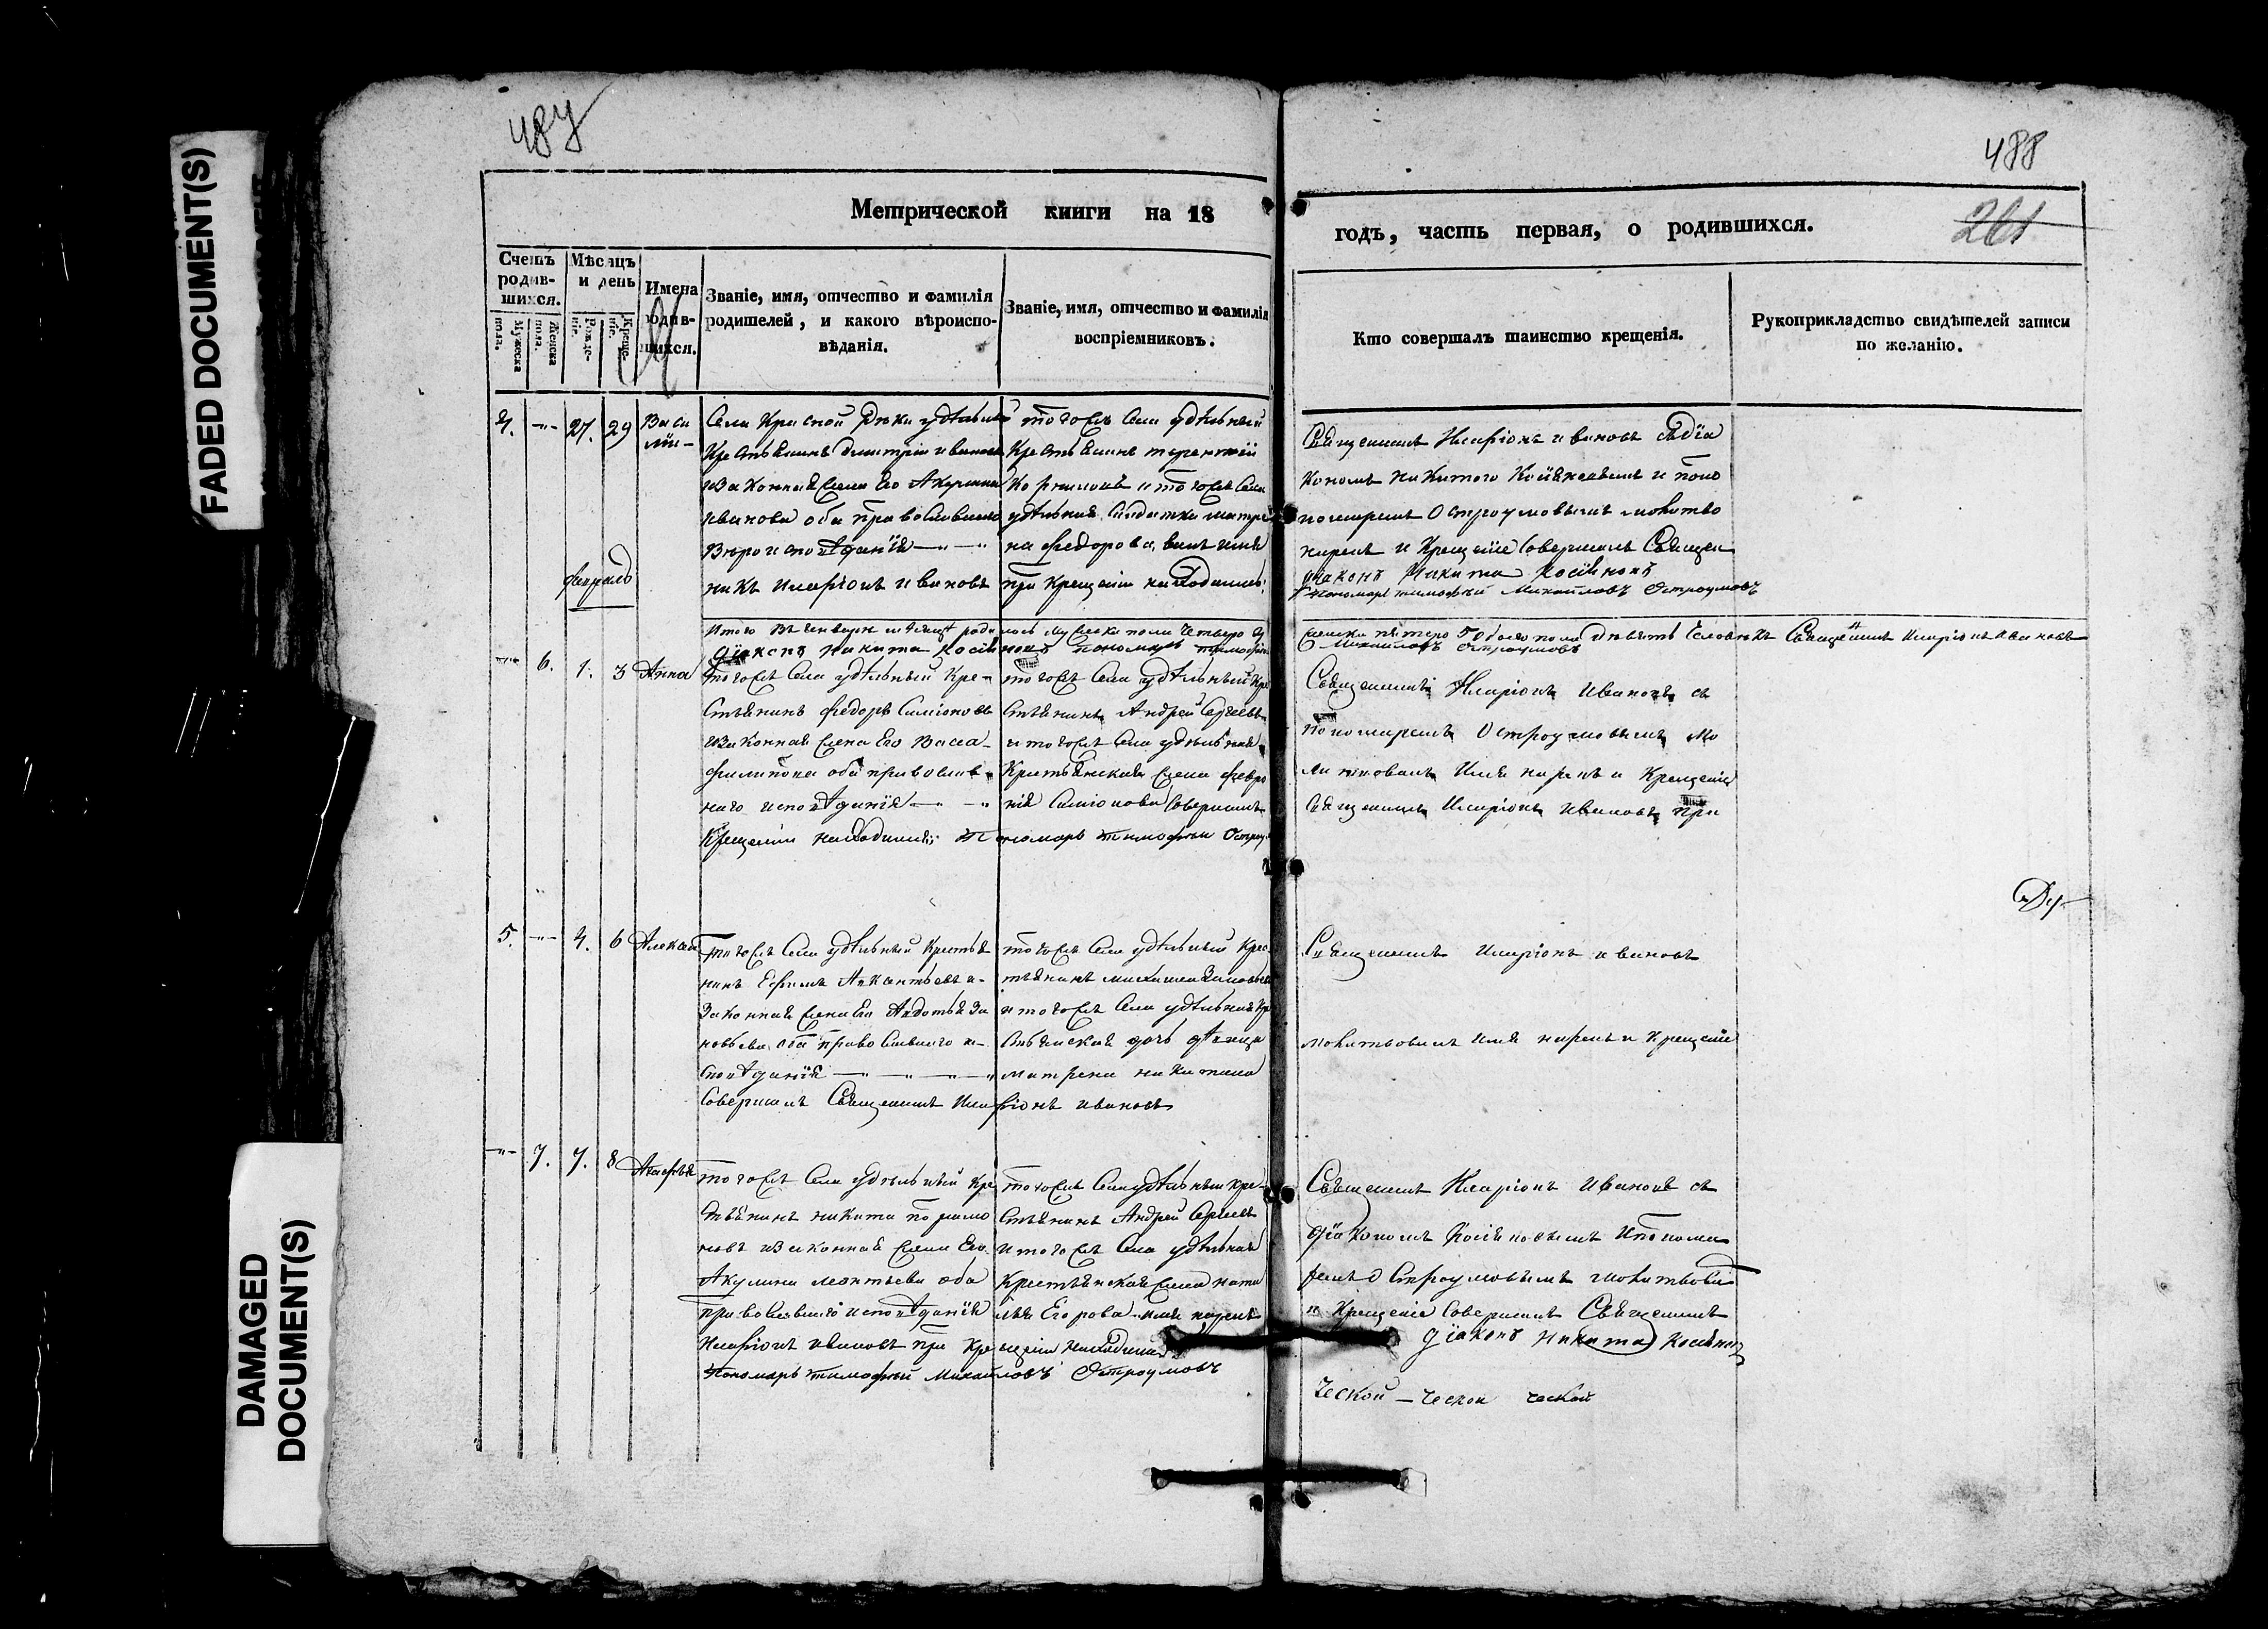 FADED DOCUMENT(S)
DAMAGED
DOCUMENT(S)
487
488
261
Метрической книги на 18
годъ, часть первая, о родившихся.
Счетъ
родив-
шихся.
Мужеска
пола.
Женска
пола.
Мѣсяцъ
и день
Рожде-
ніе.
Креще-
ніе.
Имена
родив-
шихся.
Званіе, имя, отчество и фамилія
родителей, и какого вѣроиспо-
вѣданія.
Званіе, имя, отчество и фамилія
воспріемниковъ.
Кто совершалъ таинство крещенія.
Рукоприкладство свидѣтелей записи
по желанію.
4. 27. 29 Васи
лiй
Села Красной Рѣки удѣльный
Крестьянинъ Димитрiй Ивановъ
и законная жена его Акулина
Иванова оба православнаго
вѣроисповѣданiя
никъ Иларiонъ Ивановъ
тогожъ села удѣльный
крестьянинъ Терентiй
и тогожъ села
удѣльная солдатка Матре
на Федорова, имя
при крещенiи находились
Священникъ Иларiонъ Ивановъ съ дiа
кономъ Никитою Косiнскимъ и поно
номаремъ Остроумовымъ молитво
нарекъ и крещенiе совершалъ Священ
дiаконъ Никита
Пономарь Тимофѣй Михайловъ Остроумовъ
февраль
Итого въ генварѣ мѣсяцѣ роди
лось мужеска пола четверо 4
женска пятеро 5 обоего пола девять человѣкъ Священникъ Иларiонъ Ивановъ
дiаконъ Никита пономарь Тимофѣй
Михайловъ Остроумовъ
6. 1. 3 Анна
тогожъ села удѣльный кре-
стьянинъ Федоръ Симiоновъ
и законная жена его Васса
Филипова оба православ-
наго исповѣданiя
крещенiи находились; пономарь Тимофѣй
тогожъ села удѣльный кре
стьянинъ Андрей Сергѣевъ
и тогожъ села удѣльная
крестьянская жена Февро
нiя Симiонова совершалъ
Священникъ Иларiонъ Ивановъ съ
пономаремъ Остроумовымъ мо
литвовалъ имя нарекъ и крещенiе
Священникъ Иларiонъ Ивановъ при
5. 4. 6 Алексѣй
тогожъ села удѣльный крестья
нинъ Ефимъ и
законная жена его Авдотья За
новьева оба православнаго и-
сповѣданiя
совершалъ Священникъ Иларiонъ Ивановъ
тогожъ села удѣльный крес
тьянинъ
и тогожъ села удѣльная кре
стьянская дочь дѣвица
Матрена Никитина
Священникъ Иларiонъ Ивановъ
молитвовалъ имя нарекъ и крещенiе
7. 7. 8 Агафья
тогожъ села удѣльный кре
стьянинъ Никита
новъ и законная жена его
Акулина Леонтьева оба
православнаго исповѣданiя
Иларiонъ Ивановъ при крещенiи находились
Пономарь Тимофѣй Михайловъ Остроумовъ
тогожъ села удѣльный кре
стьянинъ Андрей Сергѣевъ
и тогожъ села удѣльная
крестьянская жена Ната
лья Егорова имя нарекъ
Священникъ Иларiонъ Ивановъ съ
дiакономъ и понома
ремъ Остроумовымъ молитвовалъ
и крещенiе совершалъ Священникъ
дiаконъ Никита
ческой – ческой ческой